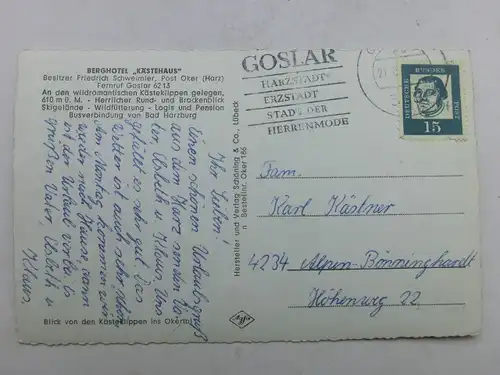 BERGHOTEL „KÄSTEHAUS"
Besitzer Friedrich Schweimler, Post Oker (Harz)
Fernruf Goslar 6213
An den wildromantischen Kästeklippen gelegen,
610 m ü. M. - Herrlicher Rund- und Brockenblick
Skigelände - Wildfütterung - Logis und Pension
Busverbindung von Bad Harzburg
Ihr Lieben!
Einen schönen Urlaubsgruß
aus dem Harz senden Va.
Elsbeth u. Klaus. Uns
gefällt es sehr gut. Das
Wetter ist auch sehr schön
Am Montag kommen wir
wieder nach Hause, dann
ist der Urlaub vorbei. Es
grüßen Vater, Elsbeth u.
Klaus.
Blick von den Kästeklippen ins Okertal
Hersteller und Verlag Schöning & Co., Lübeck
Bestellnr. Oker 186
GOSLAR
HARZSTADT
ERZSTADT
STADT DER
HERRENMODE
DEUTSCHE BUNDESPOST
15
Fam.
Karl Kästner
4234 Alpen-Bönninghardt
Höhenweg 22